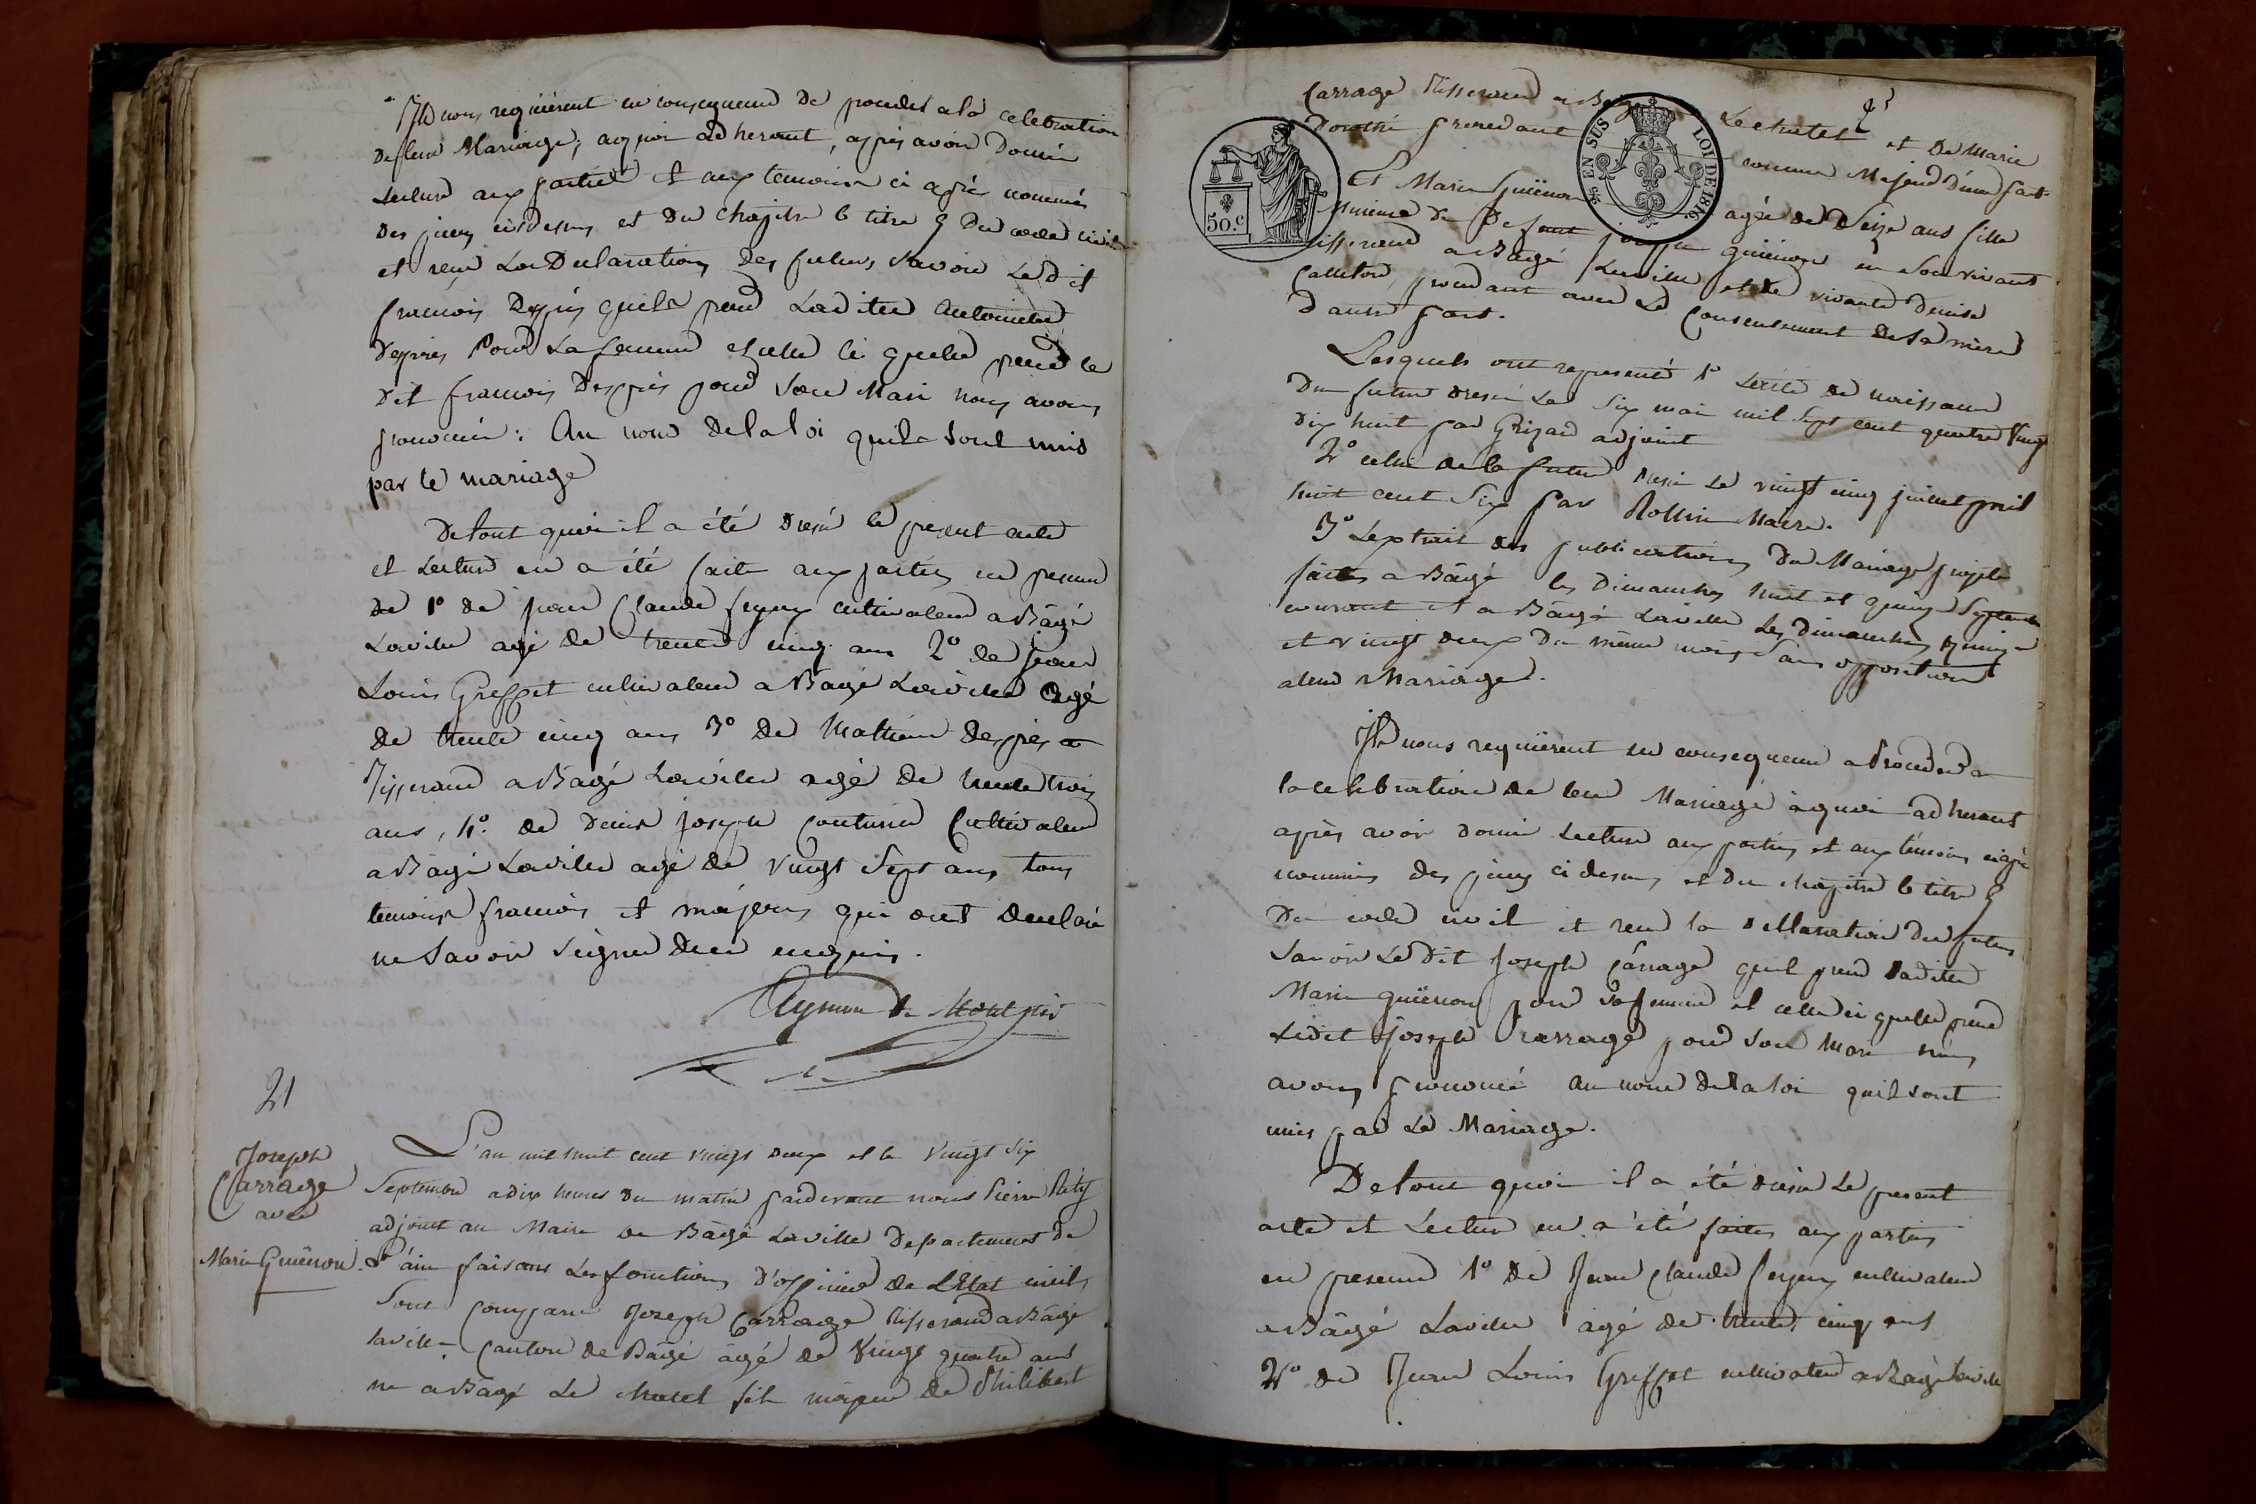 Ils nous requiérent en consequence de proceder a la celebration
de leur Mariage, aquoi adherant, après avoir donné
Lecture aux parties et aux temoins ci après nommés
des pieces cidessus et du chapitre 6 titre 5 du code civil
et reçu La Declaration des futurs savoir Le dit
francois Després quil prend Ladite Antoinette
Després Pour La femme et celle ci quelle prend le
dit francois Després pour son Mari nous avons
prononcé : Au nom de la loi quils sont unis
par le mariage
De tout quoi il a été dressé le present acte
et Lecture en a été faite aux parties en presence
de 1º de jean Claude cultivateur a Bâgé
Laville agé de trente cinq ans 2º de jean
Louis Greffet cultivateur a Bagé Laville agé
de trente cinq ans 3º de Mathieu després
Tisserand a Bagé Laville agé de trente trois
ans, 4º. de Denis joseph couturier Cultivateur
a Bagé Laville agé de vingt Sept ans tous
temoins francois et majeurs qui ont declaré
ne savoir signer de ce enquis.
Aymon de Montépin
21
Joseph
Carrage
avec
Marie Guënon.
L'an mil huit cent vingt deux et le vingt six
Septembre a dix heures du matin pardevant nous Pierre
adjoint au Maire de Bâgé Laville Departement de
L'ain faisant Les fonctions D'officier de L'Etat civil,
Sont comparu Joseph Carrage Tisserand a Bâgé
laville Canton de Bâgé âgé de vingt quatre ans
né a Bagé Le chatel fils majeur de Philibert
Carrage Tisserand a Bagé Le chatel et de Marie
Dorothé prenedant Majeur d'une part
50.c
EN SUS
LOI DE 1816
Et Marie Guënon agée de Seize ans fille
Mineure de Defunt joseph guënon en Son vivant
tisserand a Bagé Laville et de vivante denise
Caneton, procedant avec Le Consentement de Sa mère
d'autre part.
Lesquels ont representé 1º L'acte de naissance
du futur dressé Le Six mai mil Sept cent quatre vingt
dix huit par Grizard adjoint
2º celui de la future dressé Le vingt cinq juillet mil
huit cent Six par Rollin Maire.
3º L'extrait des publications du Mariage projeté
faites a Bâgé les Dimanches huit et quinze Septembre
courant et a Bâgé Laville Les dimanches quinze
et vingt deux du même mois Sans opposition
aleur Mariage.
Ils nous requiérent en consequence a Proceder a
la celebration de leur Mariage àquoi adherant
après avoir donné Lecture aux parties et aux témoins ci après
nommés des pieces ci dessus, et du chapitre 6 titre 5
Du code civil et reçu la déllaration des futurs
Savoir Le dit Joseph Carrage quil prend Ladite
Marie guënon pour Sa femme et celle ci quelle prend
Ledit joseph Carrage pour Son Mari nous
avons prononcé au nom de la loi quil sont
unis par Le Mariage.
De tout quoi il a été dressé Le present
acte et Lecture en a été faites aux parties
en presence 1º de Jean Claude cultivateur
a Bâgé Laville âgé de trente cinq ans
2º de Jean Louis Greffet cultivateur a Bagé laville